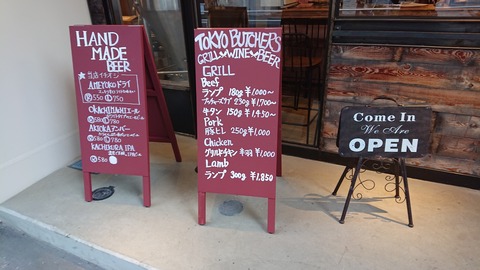 HAND
MADE
BEER
☆当店イチオシ
AMEYOKOドライ
550 750
OKACHIMACHIエール
580 780
AKIOKAアンバー
580 780
KACHIMURA IPA
580
TOKYO BUTCHERS
GRILL WINE BEER
GRILL
Beef
ランプ 180g ¥1,000〜
230g ¥1,700〜
牛タン 150g ¥1,450〜
Pork
肩ロース 250g ¥1,000
Chicken
グリルドチキン 半羽 ¥1,000
Lamb
ランプ 300g ¥1,850
Come In
We Are
OPEN